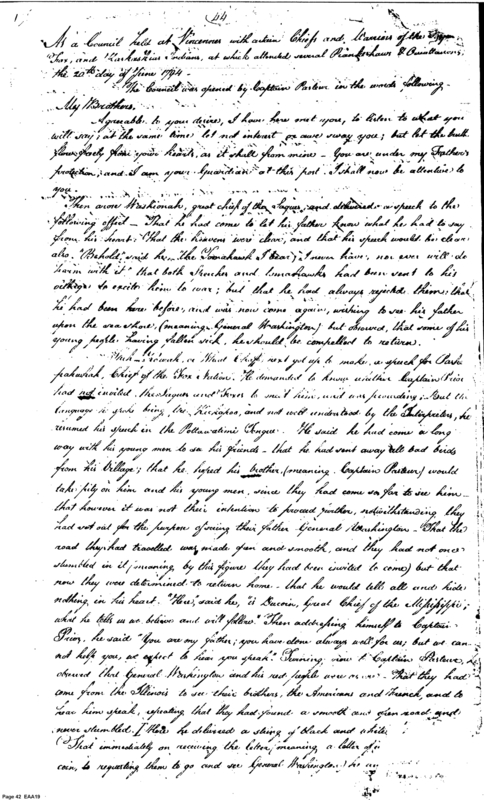 44
At a Council held at Vincennes with certain Chiefs and Warriors of the
Fox, and Kaskaskias Indians, at which attended several Piankeshaws & Ouiattanons,
the 20th day of June 1794.
The Council was opened by Captain Pasteur in the words following.
My Brothers,
Agreeable to your desire, I have here met you, to listen to what you
will say; at the same time let not interest or awe sway you; but let the truth
flow freely from your hearts, as it shall from mine. You are under my Father's
protection, and I am your Guardian at this post. I shall now be attentive to
you.
Then arose Washionah, great chief of the Saques, and delivered a speech to the
following effect — That he had come to let his father know what he had to say
from his heart; (That the heavens were clear, and that his speech would be clear
also. "Behold," said he, "the Tomahawk I bear; I never have, nor ever will do
harm with it" that both and had been sent to his
village to excite him to war; but that he had always rejected them; that
he had been here before, and was now come again, wishing to see his father
upon the sea shore, (meaning General Washington) but observed, that some of his
young people having fallen sick, he should be compelled to return.
or Chief next got up to make a speech for
Chief of the Fox Nation. He demanded to know whether Captain Prior
had not invited the Saques and Foxes to meet him, and was proceeding; But the
language he spoke being the Kickapoo, and not well understood by the Interpreters, he
resumed his speech in the Pottawatimi Tongue. He said he had come a long
way with his young men to see his friends — that he had sent away all bad birds
from his Village; that he hoped his brother (meaning Captain Pasteur) would
take pity on him and his young men, since they had come so far to see him —
that however it was not their intention to proceed further, notwithstanding they
had set out for the purpose of seeing their father General Washington — That the
road they had travelled was made open and smooth, and they had not once
stumbled in it (meaning by this figure they had been invited to come) but that
now they were determined to return home — that he would tell all and hide
nothing in his heart. "Here," said he, "is Ducoin, Great Chief of the Mississippi;
what he tells us we believe and will follow." Then addressing himself to Captain
Prior, he said "You are my father; you have done always well for us; but we can-
not help you, we expect to hear you speak." Turning to Captain Pasteur, he
observed that General Washington and his red people were as one — That they had
come from the Illinois to see their brothers, the Americans and French, and to
hear him speak, repeating that they had found a smooth and open road and
never stumbled. [Here he delivered a string of black and white
(That immediately on receiving the letter, meaning a letter of
coin, requesting them to go and see General Washington) he
Page 42 EAA19